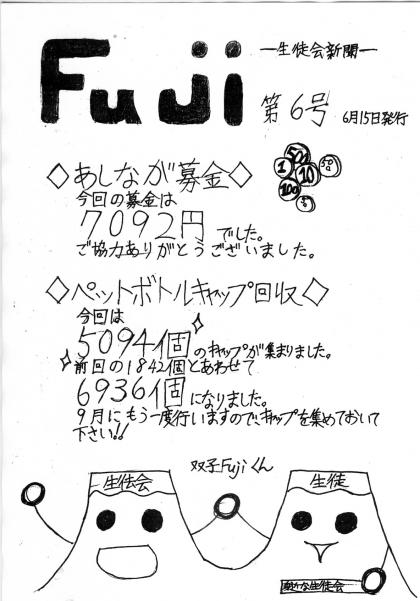 Fuji
―生徒会新聞―
第6号
6月15日発行
◇あしなが募金◇
今回の募金は
7092円でした。
ご協力ありがとうございました。
50
1
10
100
50
5
◇ペットボトルキャップ回収◇
今回は
5094個のキャップが集まりました。
前回の1842個とあわせて
6936個になりました。
9月にもう一度行いますので、キャップを集めておいて
下さい!!
双子Fujiくん
生徒会
生徒
生徒会